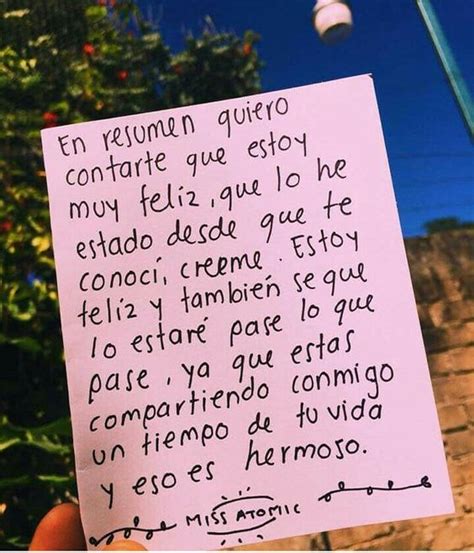 En resumen quiero
contarte que estoy
muy feliz, que lo he
estado desde que te
conocí, creeme. Estoy
feliz y también se que
lo estaré pase lo que
pase, ya que estas
compartiendo conmigo
un tiempo de tu vida
y eso es hermoso.
MISS ATOMIC